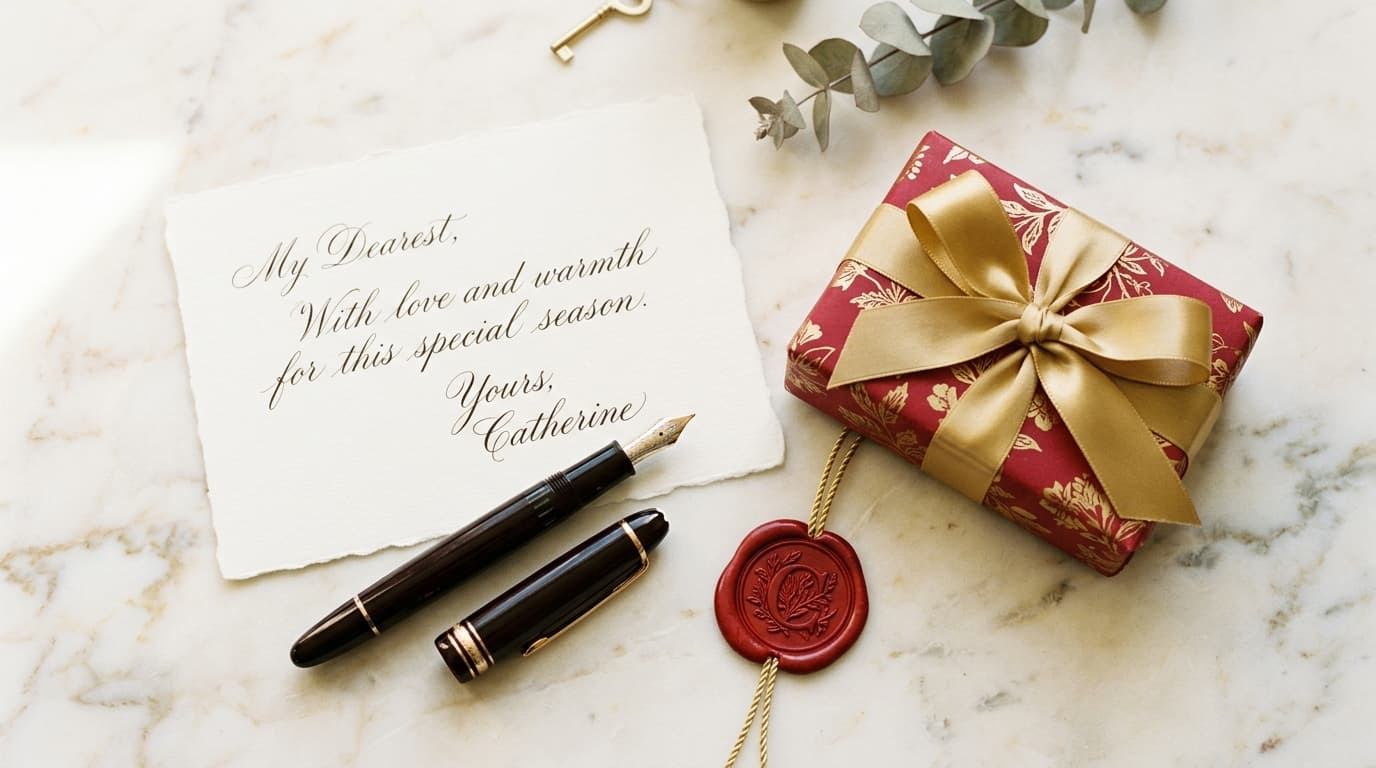 My Dearest,
With love and warmth
for this special season.
Yours,
Catherine